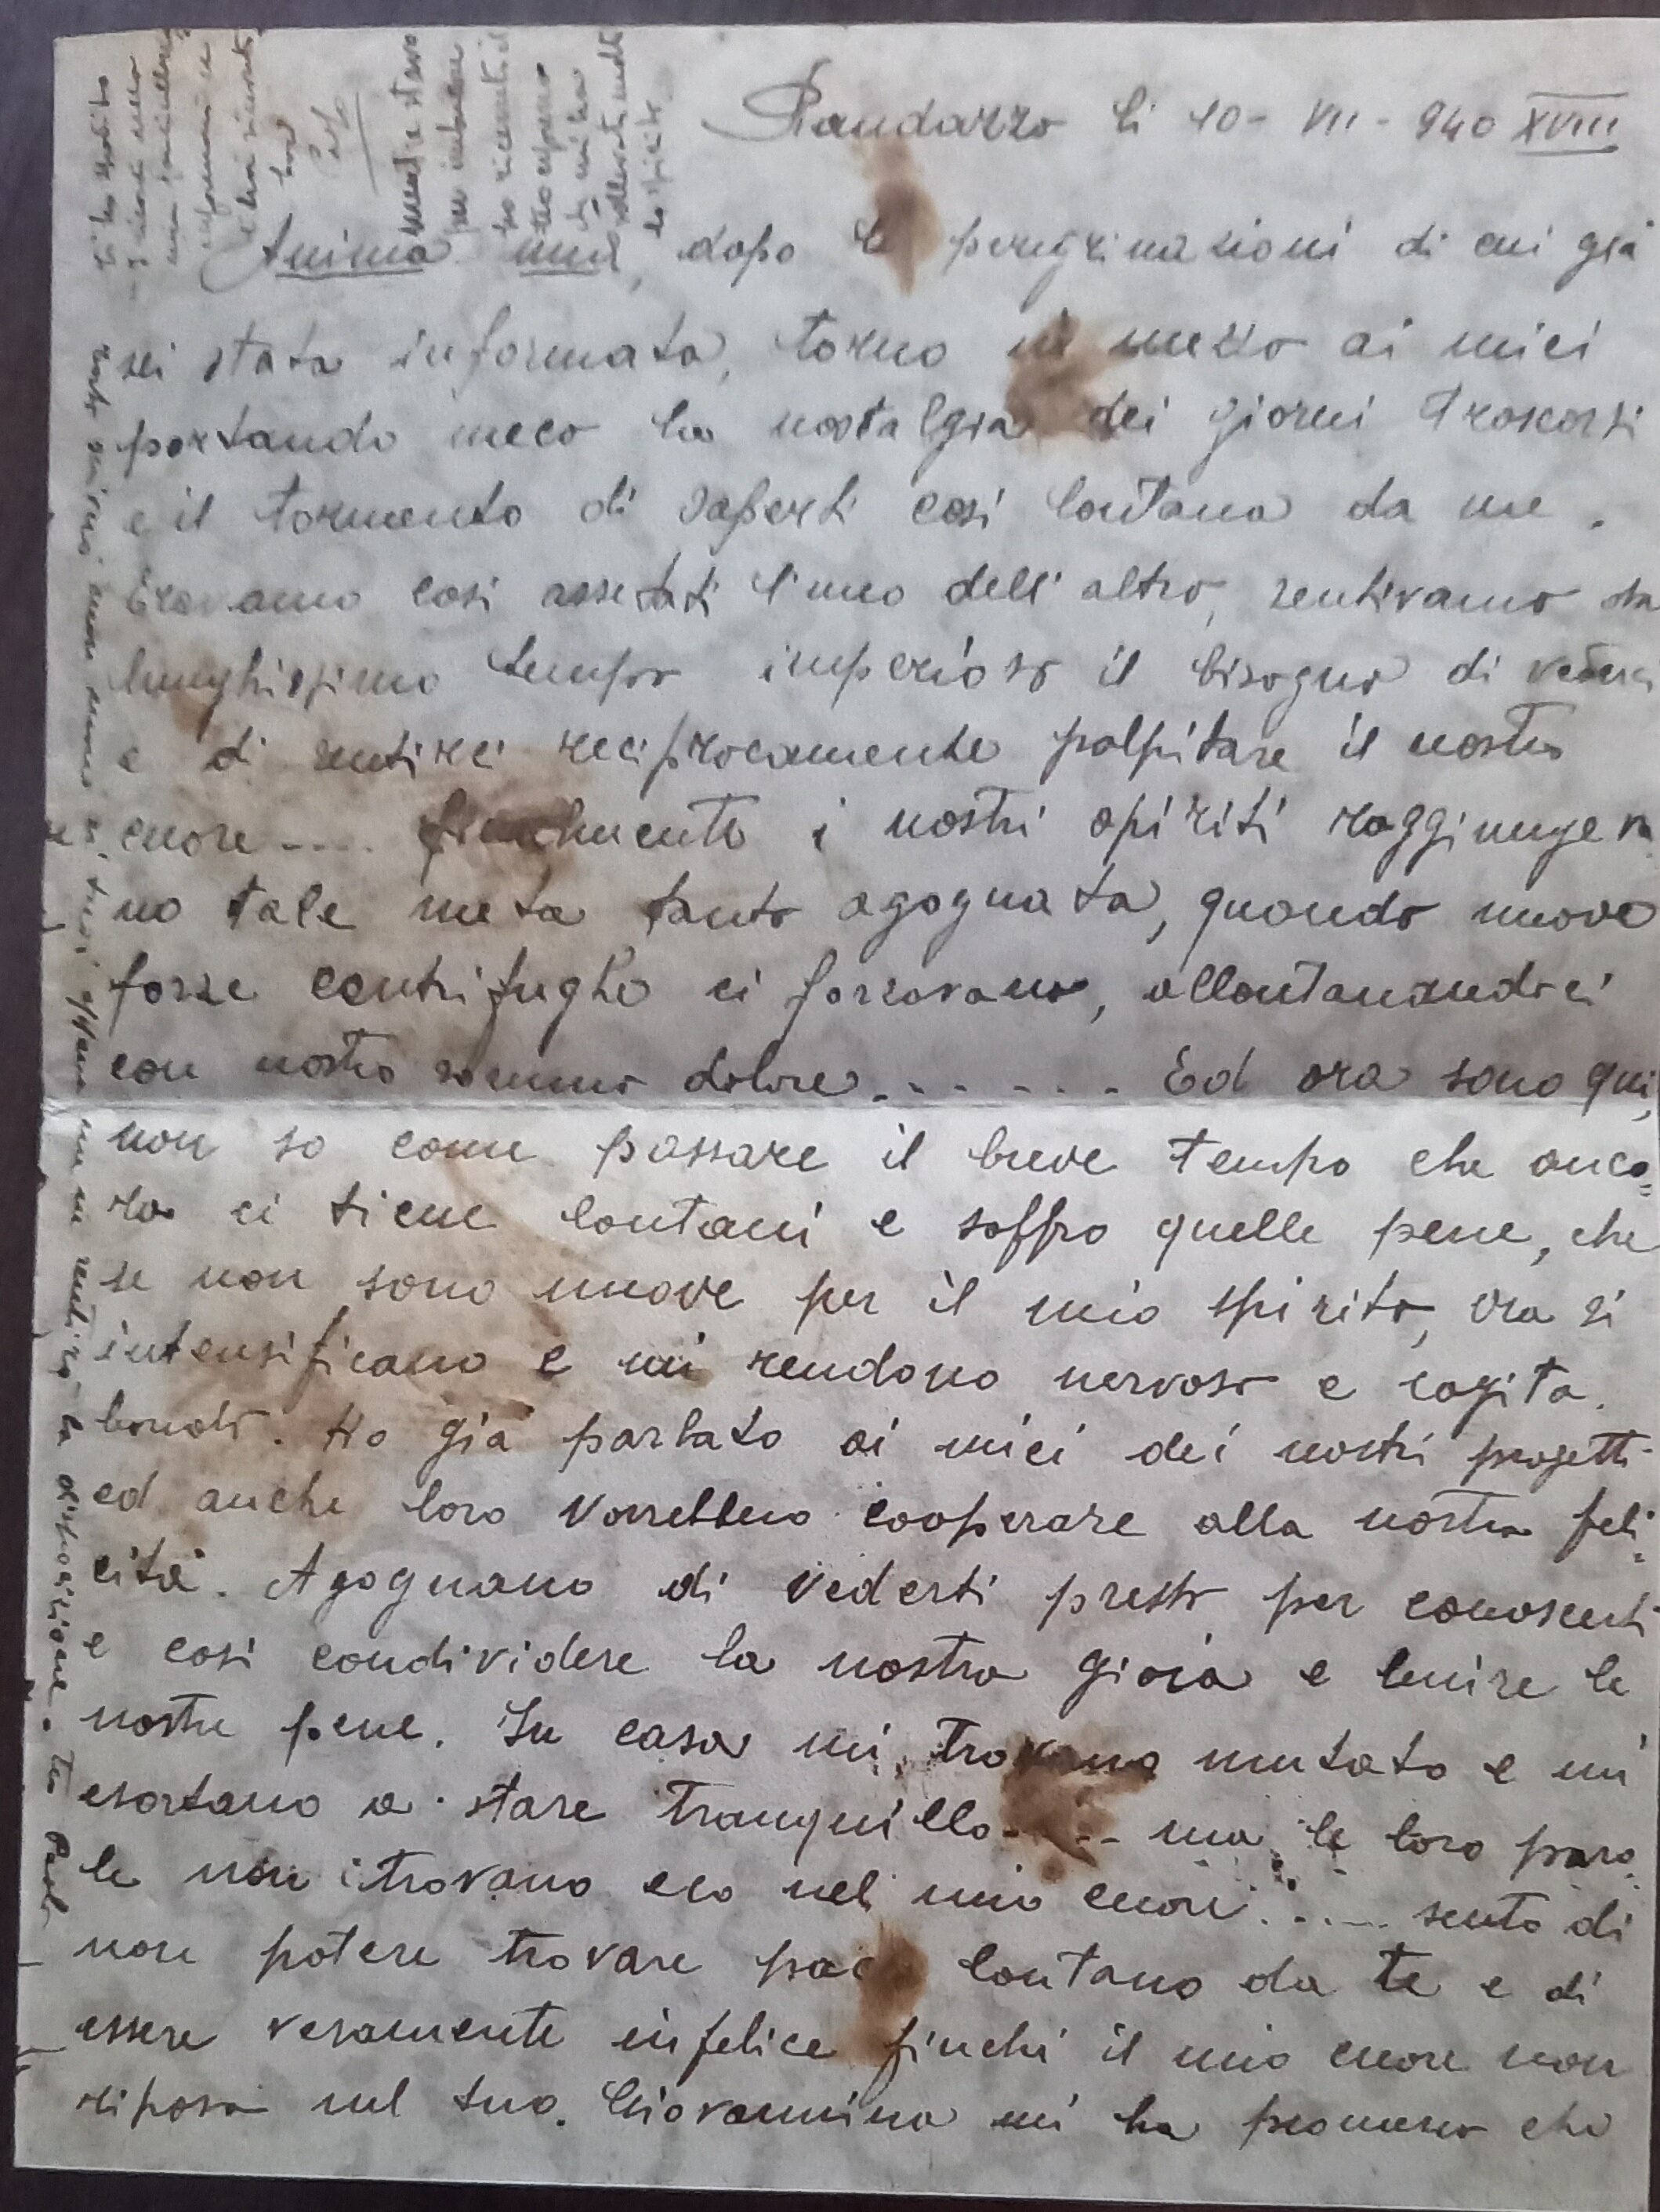 Randazzo li 10 - VII - 940 XVIII
Anima mia, dopo le peregrinazioni di cui già
sei stata informata, torno in mezzo ai miei
portando meco la nostalgia dei giorni trascorsi
e il tormento di saperti così lontana da me.
Eravamo così assetati l'uno dell'altro, sentivamo da
lunghissimo tempo imperioso il bisogno di vederci
e di sentirci reciprocamente palpitare il nostro
cuore .... finalmente i nostri spiriti raggiungeva
no tale meta tanto agognata, quando nuove
forze centrifughe ci forzavano, allontanandoci
con nostro sommo dolore ...... Ed ora sono qui,
non so come passare il breve tempo che anco=
ra ci tiene lontani e soffro quelle pene, che
se non sono nuove per il mio spirito, ora si
intensificano e mi rendono nervoso e cogita.
bondo. Ho già parlato ai miei dei nostri progetti
ed anche loro vorrebbero cooperare alla nostra feli.
cità. Agognano di vederti presto per conoscerti
e così condividere la nostra gioia e lenire le
nostre pene. In casa mi trovano mutato e mi
esortano a stare tranquillo .... ma le loro paro.
le non trovano eco nel mio cuore ..... sento di
non potere trovare pace lontano da te e di
essere veramente infelice finché il mio cuore non
riposa sul tuo. Giovannina mi ha promesso che
mente e stavo
per imbucare
ho ricevuto il
tuo espresso
che mi ha
sollevato molto
lo spirito.